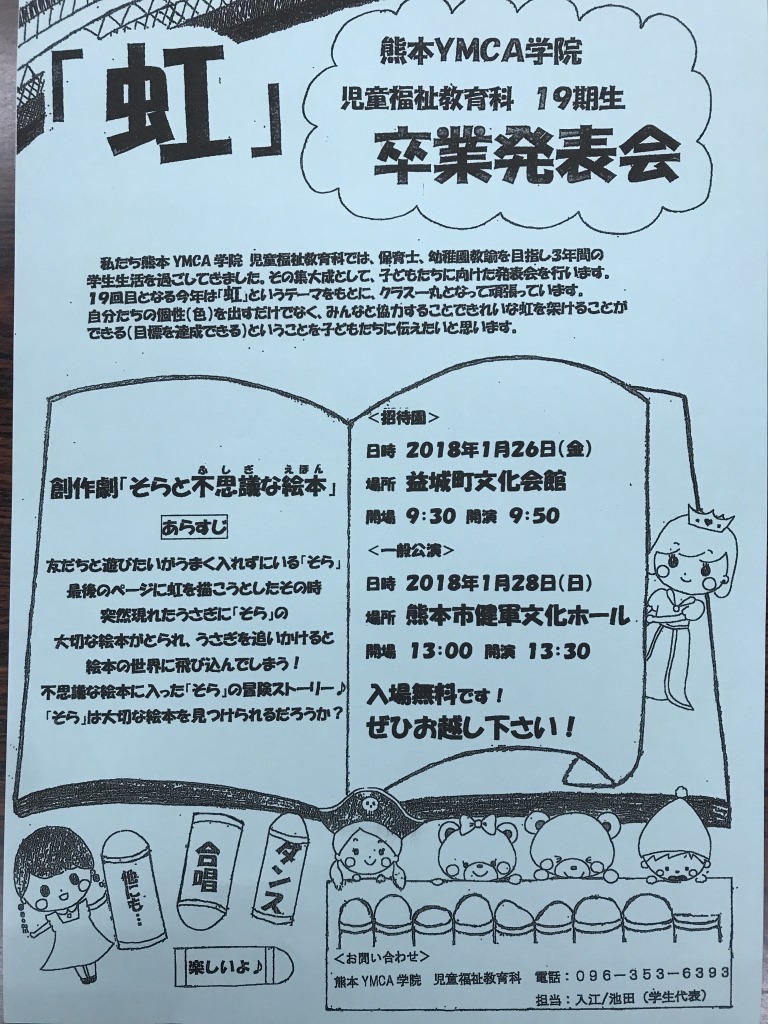 「虹」
熊本YMCA学院
児童福祉教育科 19期生
卒業発表会
私たち熊本YMCA学院 児童福祉教育科では、保育士、幼稚園教諭を目指し3年間の
学生生活を過ごしてきました。その集大成として、子どもたちに向けた発表会を行います。
19回目となる今年は「虹」というテーマをもとに、クラス一丸となって頑張っています。
自分たちの個性(色)を出すだけでなく、みんなと協力することできれいな虹を架けることが
できる(目標を達成できる)ということを子どもたちに伝えたいと思います。
ふしぎ えほん
創作劇「そらと不思議な絵本」
あらすじ
友だちと遊びたいがうまく入れずにいる「そら」
最後のページに虹を描こうとしたその時
突然現れたうさぎに「そら」の
大切な絵本がとられ、うさぎを追いかけると
絵本の世界に飛び込んでしまう!
不思議な絵本に入った「そら」の冒険ストーリー♪
「そら」は大切な絵本を見つけられるだろうか?
<招待園>
日時 2018年1月26日(金)
場所 益城町文化会館
開場 9:30 開演 9:50
<一般公演>
日時 2018年1月28日(日)
場所 熊本市健軍文化ホール
開場 13:00 開演 13:30
入場無料です!
ぜひお越し下さい!
他にも…
合唱
ダンス
楽しいよ♪
<お問い合わせ>
熊本YMCA学院 児童福祉教育科 電話:096-353-6393
担当:入江/池田(学生代表)